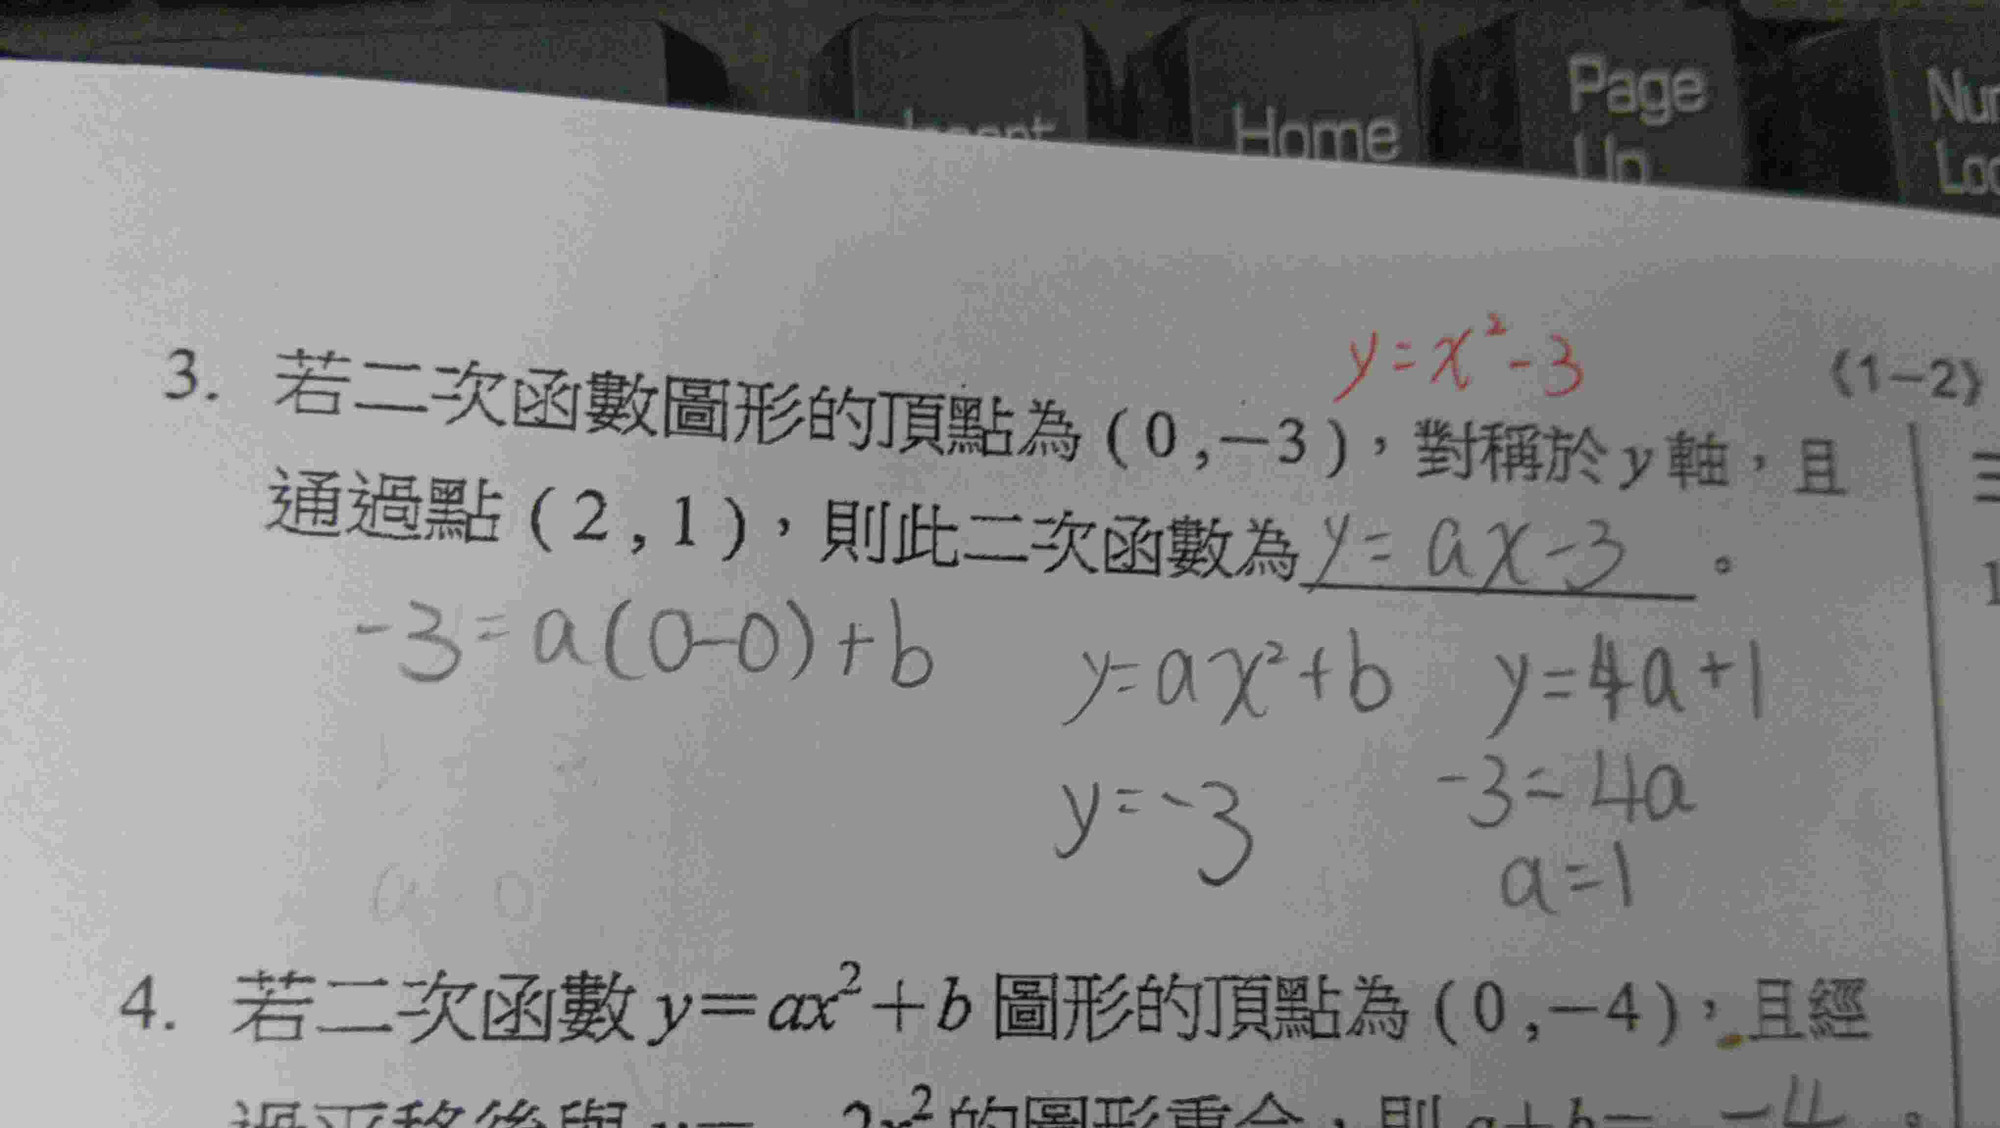 Home
Page
Up
y=x²-3
(1-2)
3. 若二次函數圖形的頂點為(0,-3),對稱於y軸,且
通過點(2,1),則此二次函數為y=ax-3。
-3=a(0-0)+b
y=ax²+b y=4a+1
y=-3 -3=4a
a=1
4. 若二次函數y=ax²+b圖形的頂點為(0,-4),且經
過平移後與 的圖形重合,則a+b= -4。